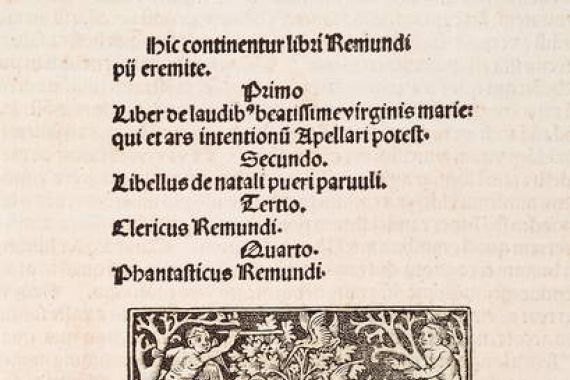 Hic continentur libri Remundi
pij eremite.
Primo
Liber de laudibꝰ beatissime virginis marie:
qui et ars intentionū Apellari potest.
Secundo.
Libellus de natali pueri paruuli.
Tertio.
Clericus Remundi.
Quarto.
Phantasticus Remundi.